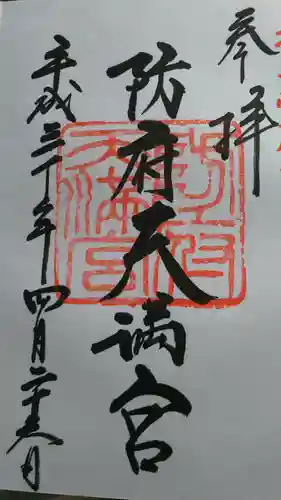 参拝
防府天満宮
平成三十年四月二十八日